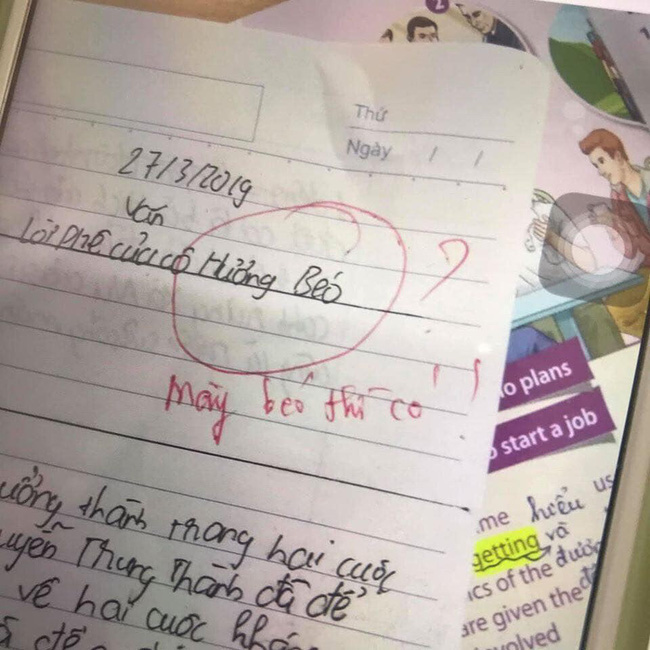 2
Thứ
Ngày / /
27/3/2019
Văn
Lời phê của cô Hưởng Béo
?
Mày béo thì có !!
o plans
start a job
ưởng thành trong hai cuộc
uyễn Trung Thành đã để
về hai cuộc khán
me hiểu us
getting và
ics of the được
are given the
volved